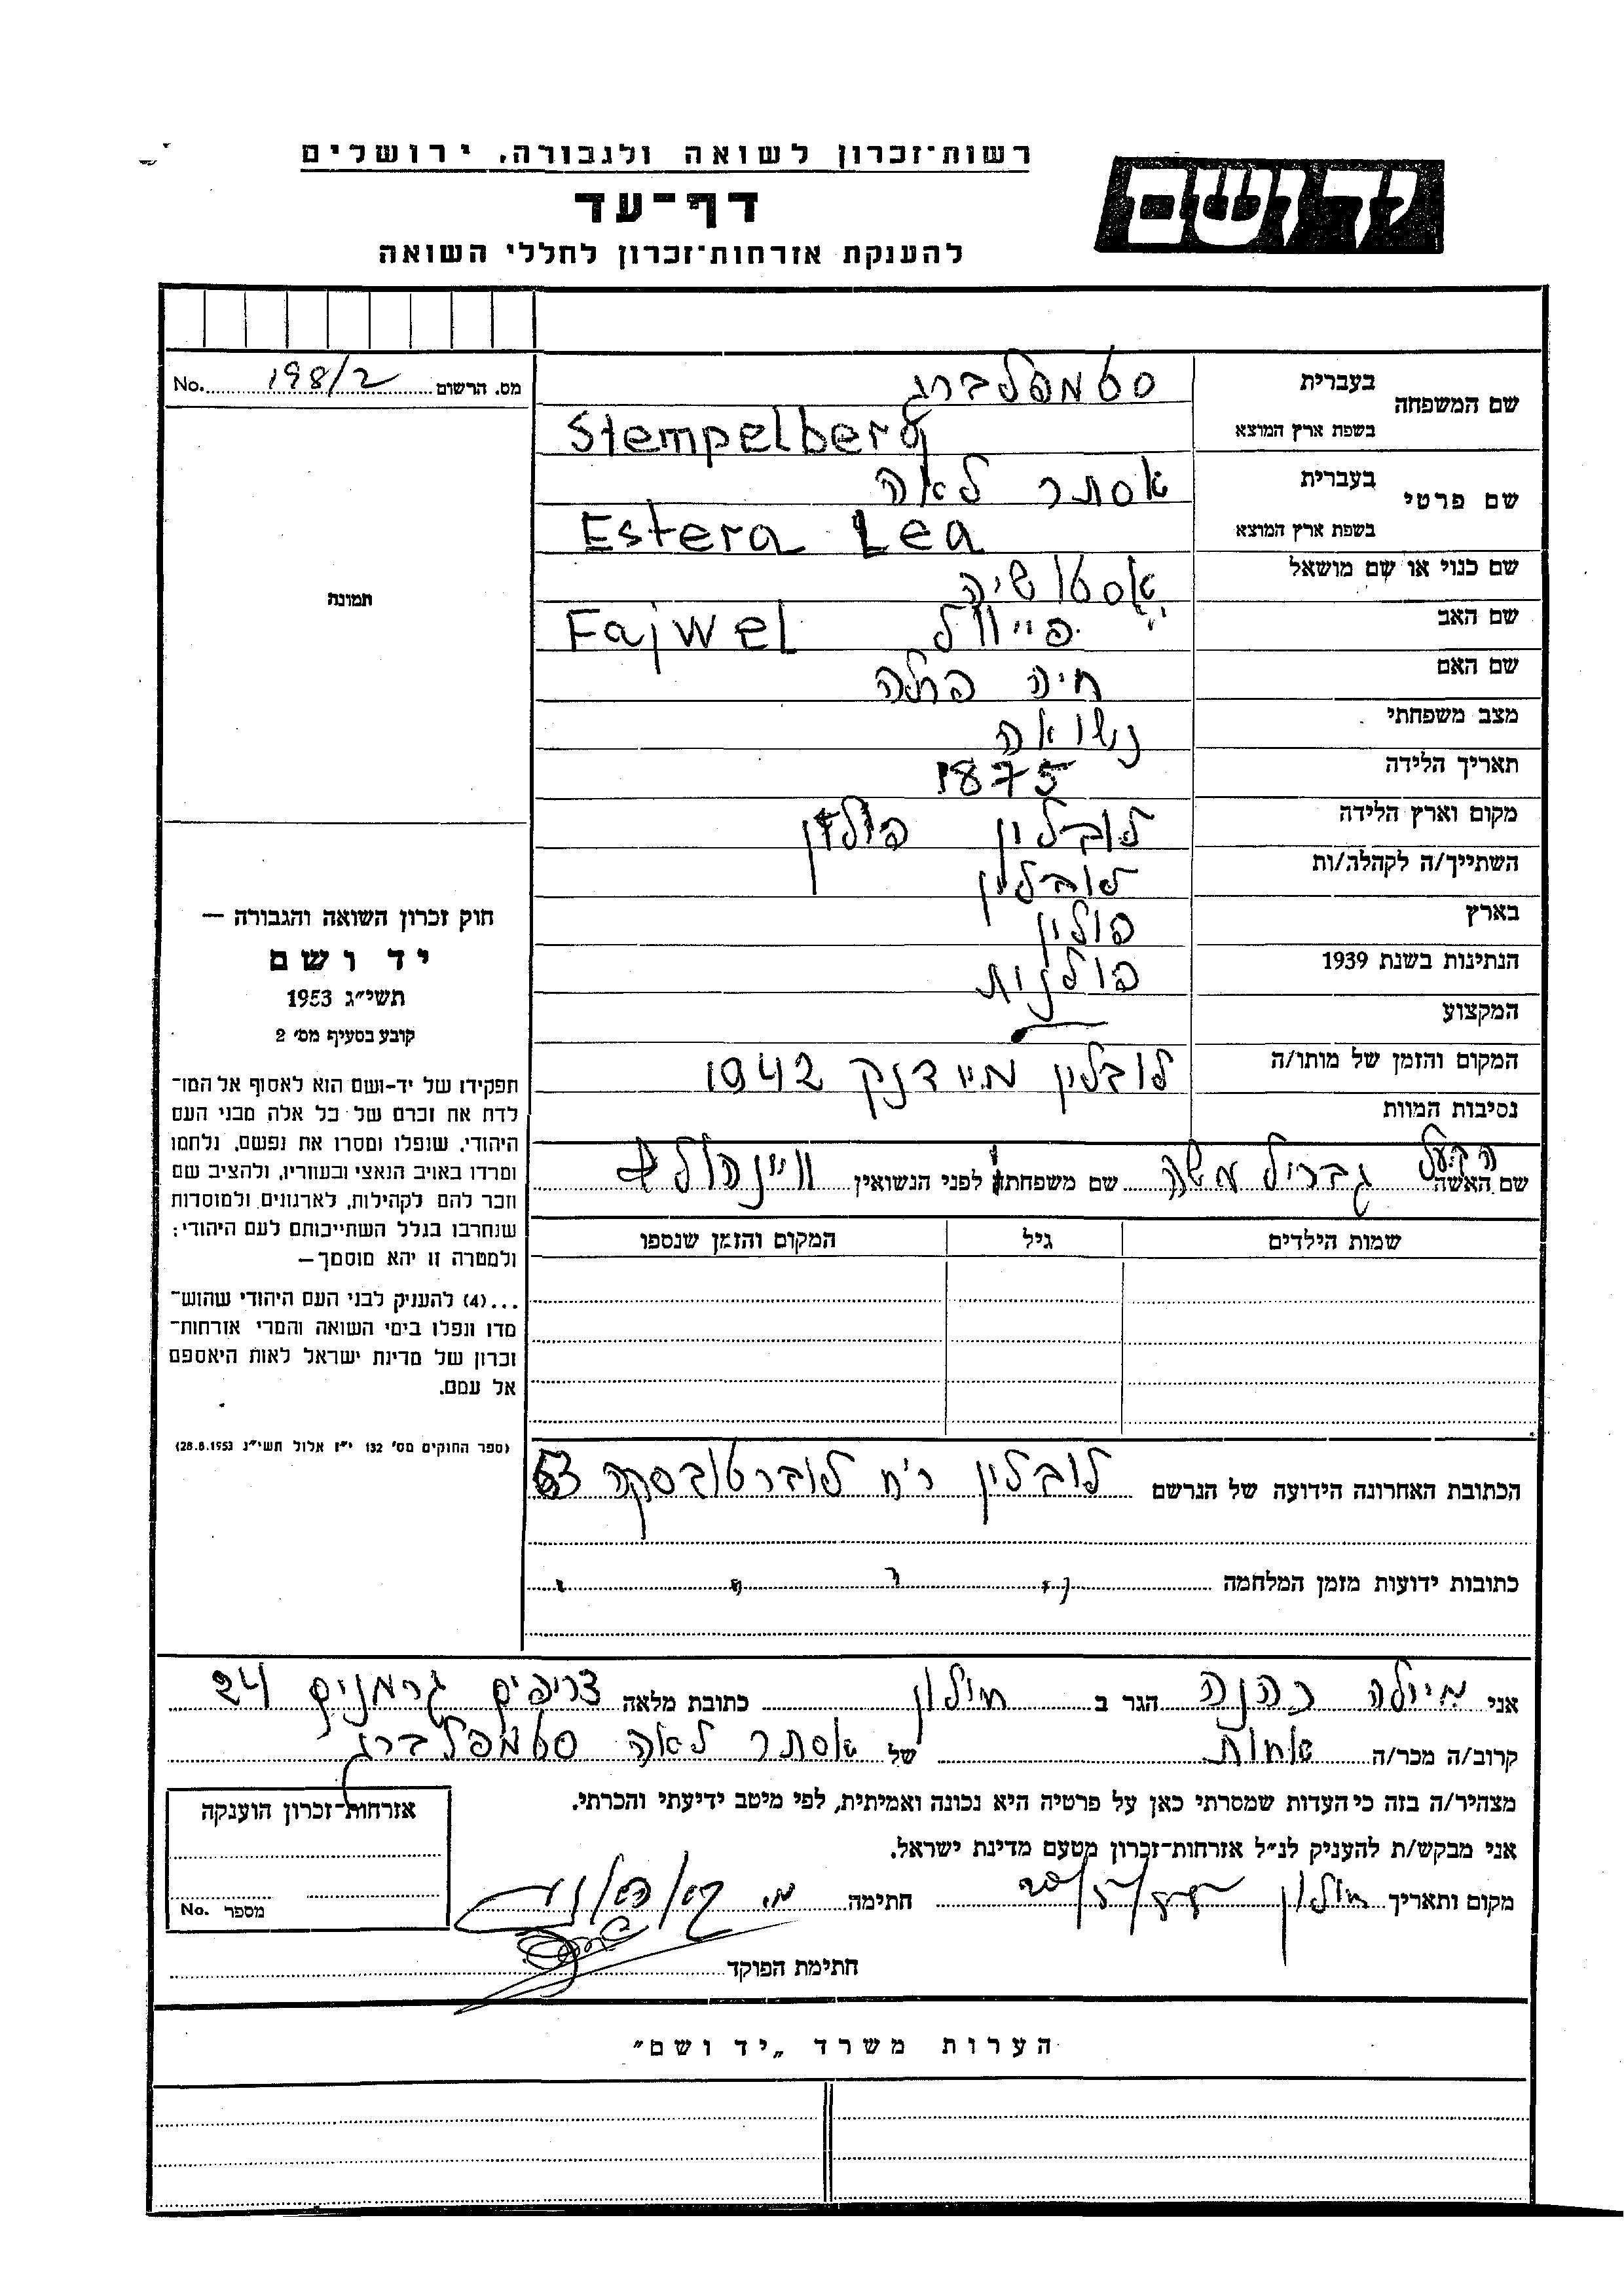 רשות־זכרון לשואה ולגבורה, ירושלים
יד ושם
דף־עד
להענקת אזרחות־זכרון לחללי השואה
מס. הרשום 198/2 No.
שם המשפחה בעברית סטמפלברג
בשפת ארץ המוצא Stempelberg
שם פרטי בעברית אסתר לאה
בשפת ארץ המוצא Estera Lea
שם כנוי או שם מושאל אסטושיה
שם האב פייוול Fajwel
שם האם חיה פרלה
מצב משפחתי נשואה
תאריך הלידה 1875
מקום וארץ הלידה לובלין פולין
השתייך/ה לקהלה/ות לובלין
בארץ פולין
הנתינות בשנת 1939 פולנית
המקצוע
המקום והזמן של מותו/ה לובלין מיידנק 1942
נסיבות המוות
הבעל
שם האשה גבריל משה שם משפחתה לפני הנשואין
שמות הילדים גיל המקום והזמן שנספו
הכתובת האחרונה הידועה של הנרשם לובלין רח לוברטובסקה 53
כתובות ידועות מזמן המלחמה
תמונה
חוק זכרון השואה והגבורה —
יד ושם
תשי״ג 1953
קובע בסעיף מס׳ 2
תפקידו של יד-ושם הוא לאסוף אל המו־
לדת את זכרם של כל אלה מבני העם
היהודי, שנפלו ומסרו את נפשם, נלחמו
ומרדו באויב הנאצי ובעוזריו, ולהציב שם
וזכר להם לקהילות, לארגונים ולמוסדות
שנחרבו בגלל השתייכותם לעם היהודי:
ולמטרה זו יהא מוסמך—
...(4) להעניק לבני העם היהודי שהוש־
מדו ונפלו בימי השואה והמרי אזרחות־
זכרון של מדינת ישראל לאות היאספם
אל עמם.
(ספר החוקים מס׳ 132 י״ז אלול תשי״ג 28.8.1953)
אני מיולה כהנה הגר ב חולון כתובת מלאה צריפים גרמנים 24
קרוב/ה מכר/ה אחות של אסתר לאה סטמפלברג
מצהיר/ה בזה כי העדות שמסרתי כאן על פרטיה היא נכונה ואמיתית, לפי מיטב ידיעתי והכרתי.
אני מבקש/ת להעניק לנ״ל אזרחות־זכרון מטעם מדינת ישראל.
מקום ותאריך חולון חתימה
חתימת הפוקד
אזרחות־זכרון הוענקה
מספר No.
הערות משרד „יד ושם״